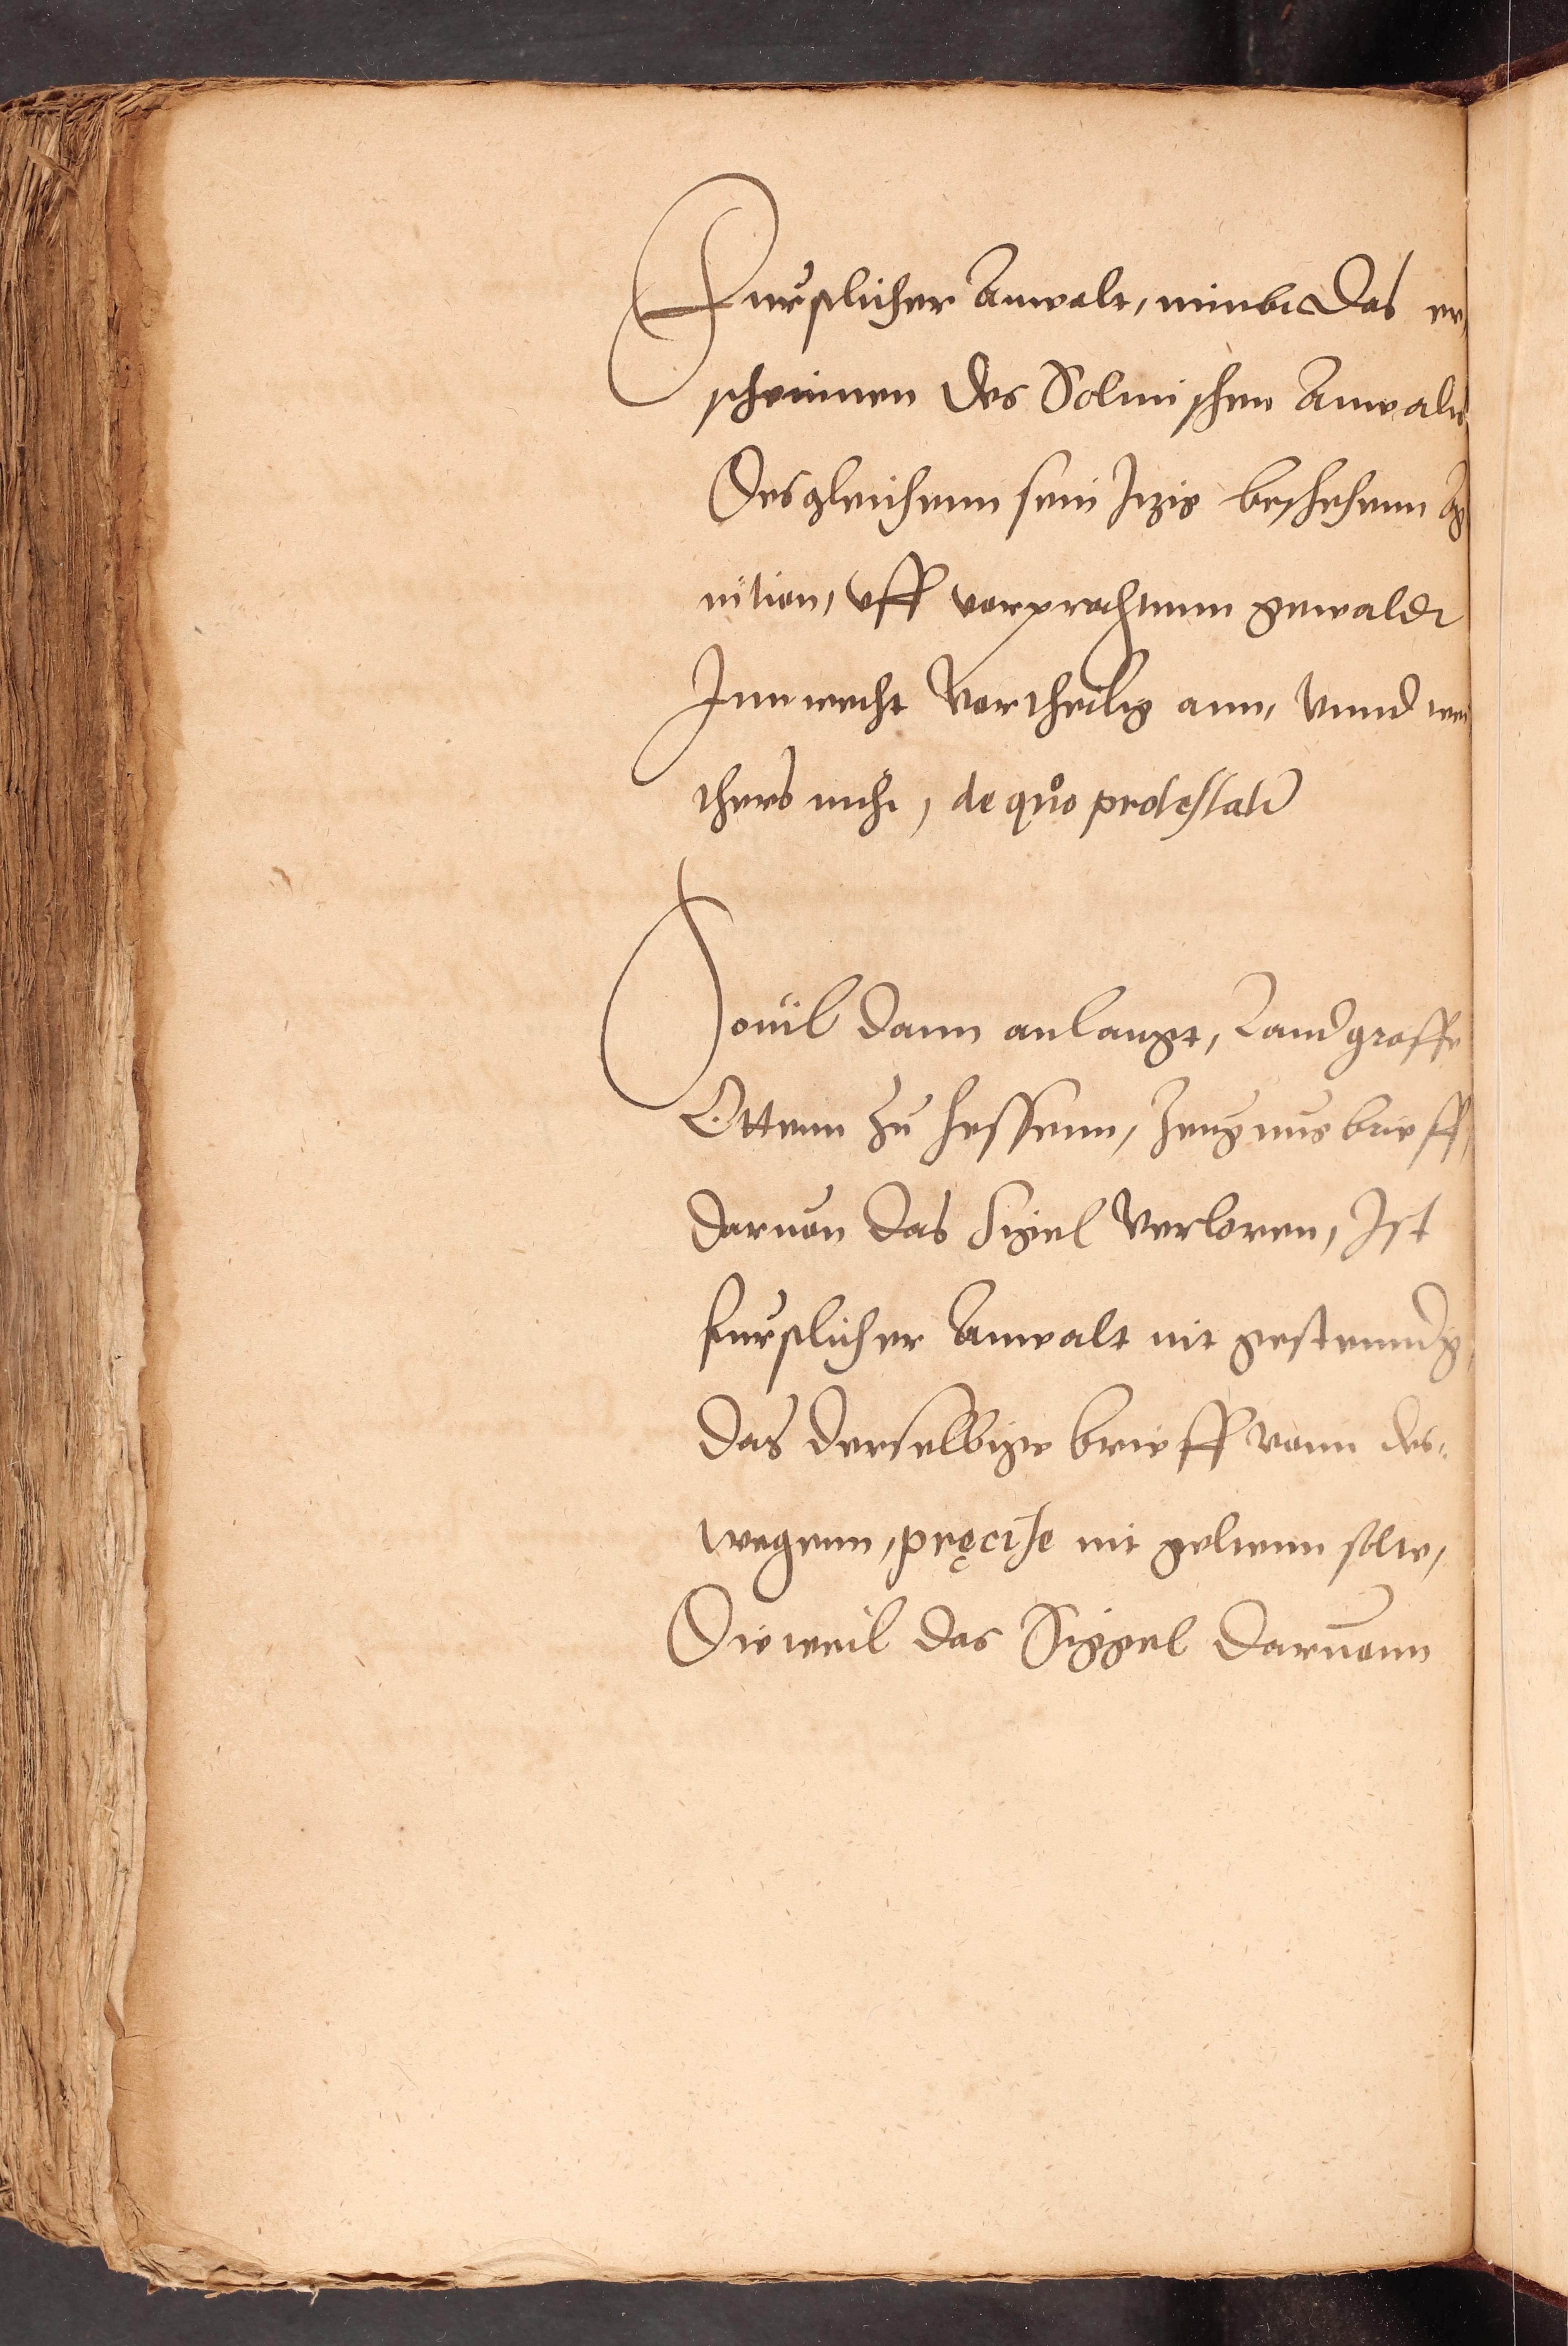 Furstlicher Anwalt, nimbt das er,
scheinnen des Solmischen Anwalts
Desgleichenn sein Jtzig beschehenn Ag
nition, vff vorprachtenn gewaldt
Jnn recht vortheilig ann, vnnd wei
thers nicht, de quo protestatur
Souil dann anlangt, Landgraffe
Ottenn zu hessenn, Zeugnus brieff,
daruon das Sigel verloren, Jst
furstlicher Anwalt nit gestenndig,
das derselbige brieff vonn des,
wegenn, precise nit geltenn solte,
Dieweil das Siggel daruonn